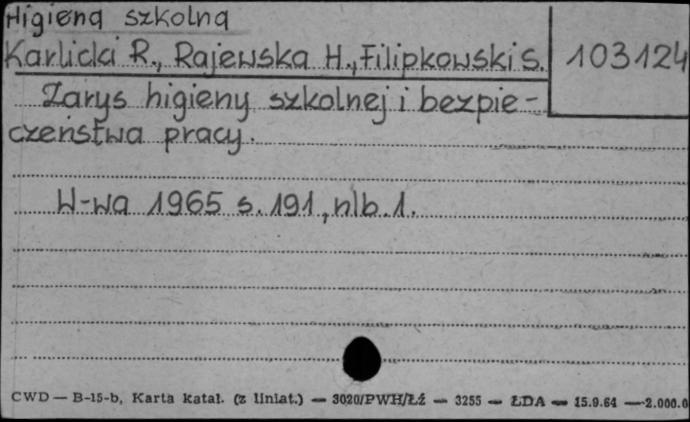 Higiena szkolna
Karlicki R., Rajewska H., Filipkowski S.
103124
Zarys higieny szkolnej i bezpie-
czeństwa pracy.
W-wa 1965 s. 191, nlb. 1.
CWD — B-15-b, Karta katal. (z liniat.) — 3020/PWH/Łź — 3255 — ŁDA — 15.9.64 — 2.000.0